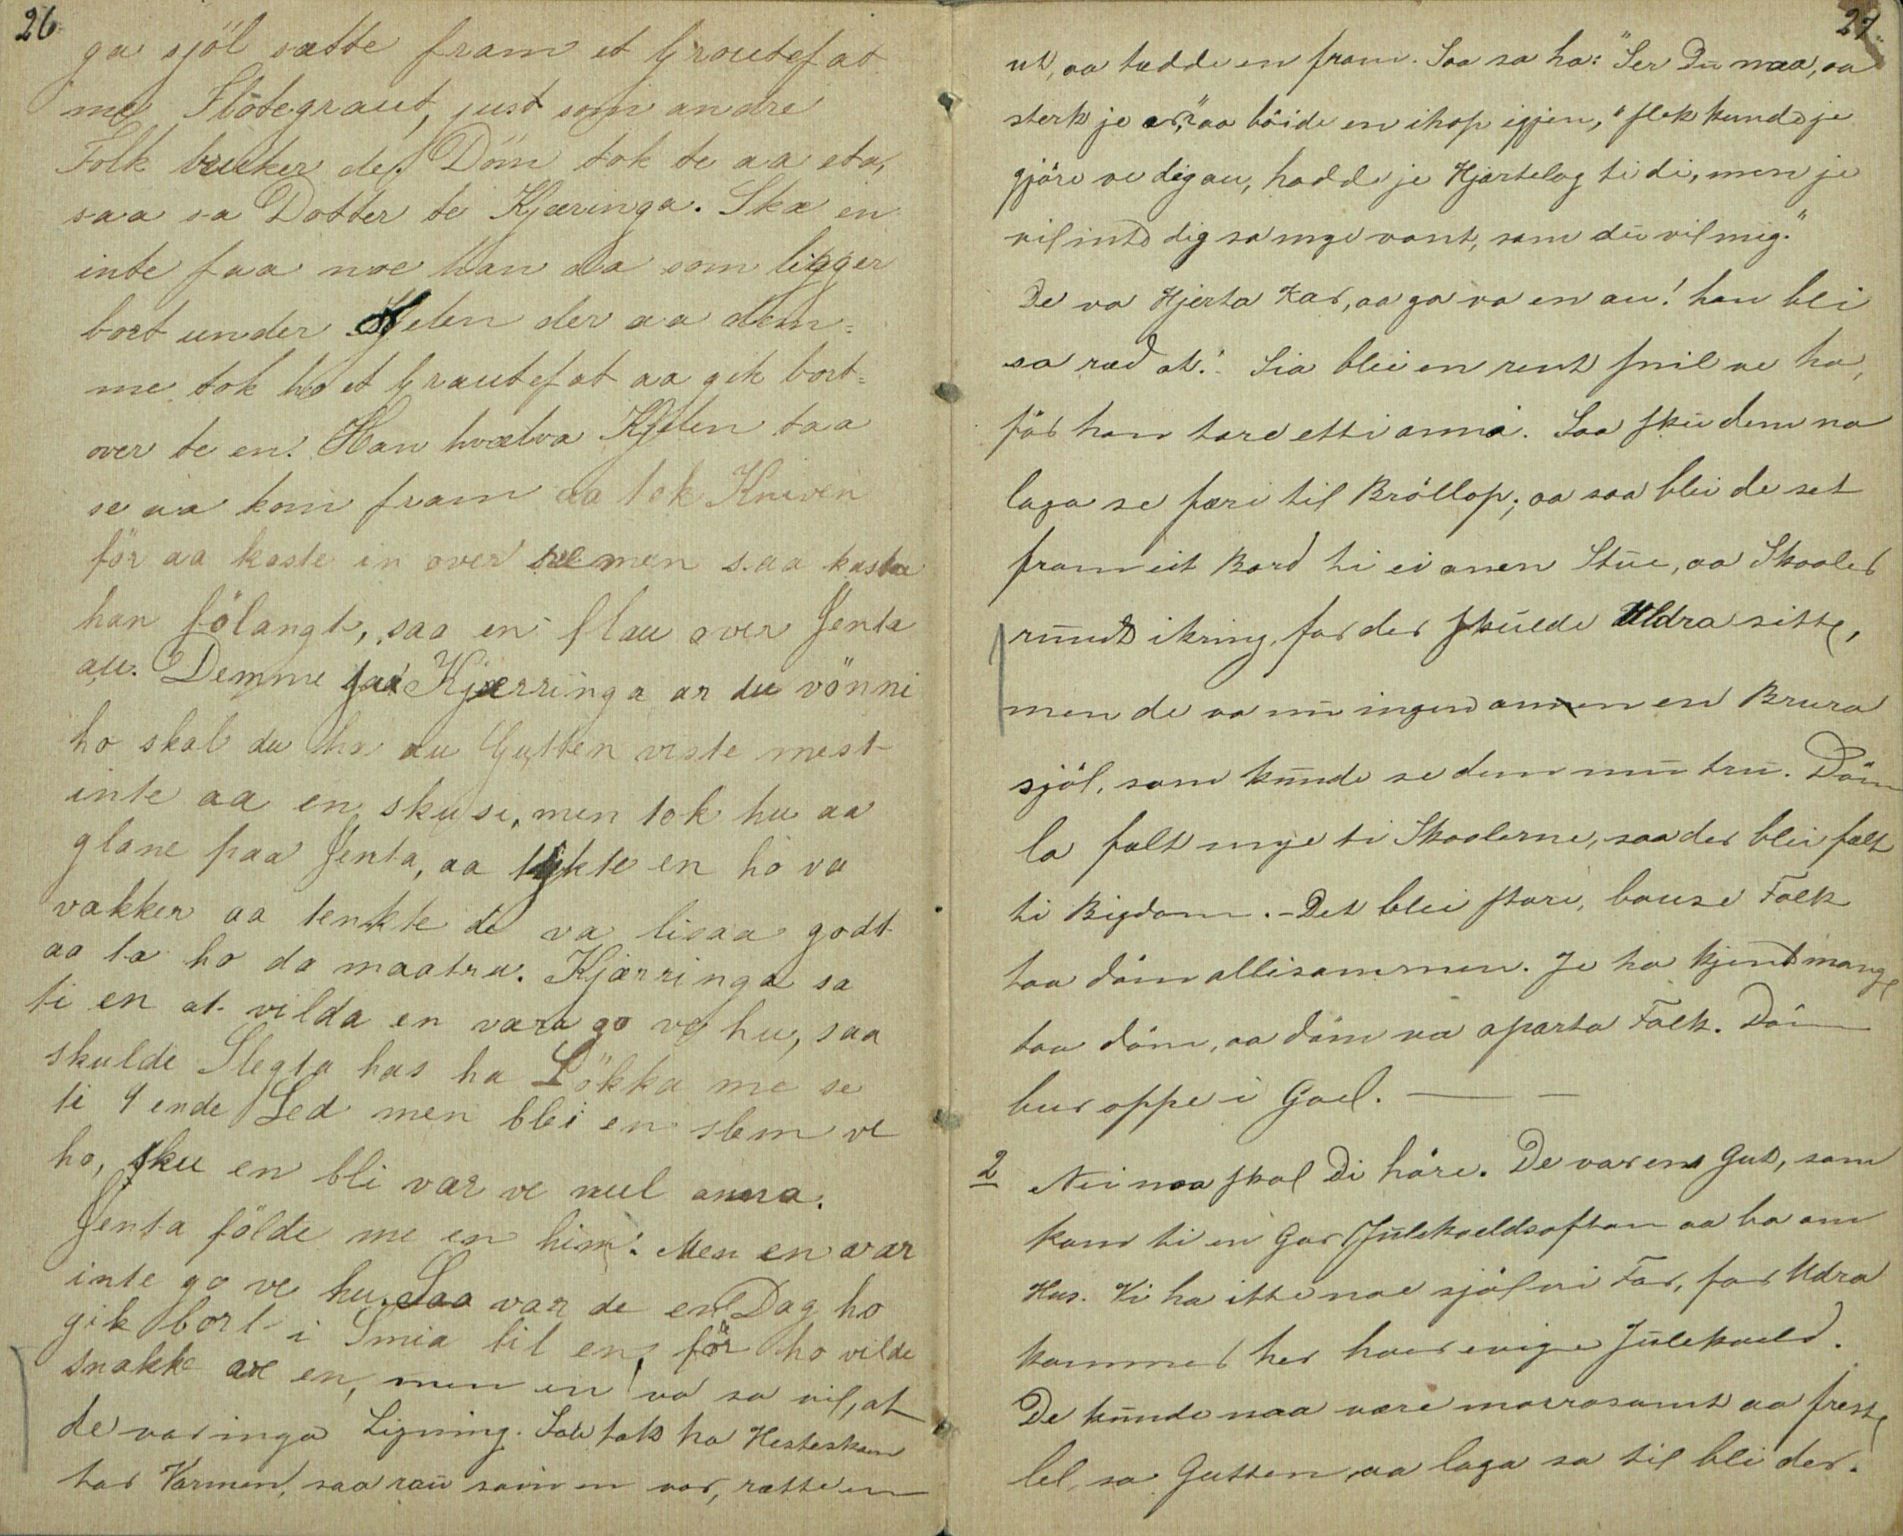 26.
ga sjöl sætte fram et Grautefat
me Flötegraut, just som andre
Folk bruker de. Döm tok te aa eta,
saa sa Dotter te Kjæringa. Ska en
inte faa noe han da som ligger
bort under Kjelen der aa dem=
me tok ho et Grautefat aa gik bort=
over te en. Han hvælva Kjelen taa
se aa kom fram aa tok Kniven
för aa kaste in over men saa kasta
han fölangt, saa en flau over Jenta
au. Demme sa Kjærringa ar du vönni
ho skal du ha au Gutten viste mest
inte aa en sku si, men tok hu aa
glane paa Jenta, aa tykte en ho va
vakker aa tenkte de va lisaa godt
aa ta ho da maatru. Kjærringa sa
ti en at vilda en vara go ve hu, saa
skulde Slegta has ha Lökka me se
ti 9 ende Led men blei en slem ve
ho, sku en bli var ve nul anna.
Jenta földe me en him. Men en var
inte go ve hu. Saa var de en Dag ho
gik bort i Smia til en, för ho vilde
snakke ve en, men en va sa vil, at
de var inga Ligning. Saa tok ho Hesteskoen
tar Varmen, saa rau som en var, rætte en
27.
ut, aa tædde en fram. Saa sa ho: "Ser Du naa, aa
sterk je er," aa böide en ihop igjen, "slek kunde je
gjöre ve dig au, hadde je Hjartelag ti di, men je
vil inte dig sa mye vont, som du vil mig."
De va Hjerta Kar, aa ga va en au! han bli
sa ræd at. Sia blei en rent snil ve ho,
för han tore etti anna. Saa sku dem na
laga se færi til Bröllop; aa saa blei de set
fram eit Bord ti ei anen Stue, aa Skaaler
rundt ikring, for der skulde Uldra sitte,
men de va nu ingen annen en Brura
sjöl, som kunde se dem nu tru. Döm
la fult mye ti Skaalerne, saa der blei fælt
ti Bigdom. - Det blei store, bause Folk
taa döm allisammen. Je ha kjent mange
taa döm, aa döm va aparta Folk. Döm
bur oppe i Goel. —
2 Nei naa skal Di höre. De var en Gut, som
kom ti en Gar Julekveldsaftan aa ba om
Hus. Vi ha itte noe sjöl vi Far, for Udra
kommer her hver evige Julekveld.
De kunde naa være morrosamt aa freste
lel, sa Gutten, aa laga sa til bli der.